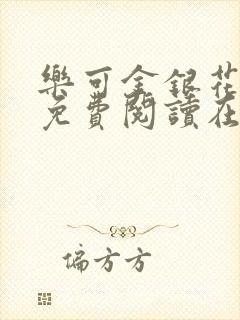 樂可金銀花
免費閱讀在
偏方方